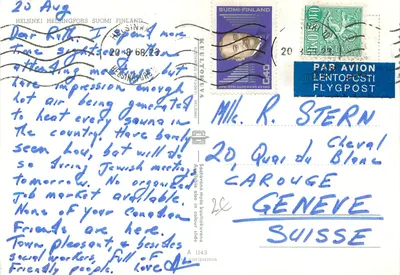 20 Aug
HELSINKI HELSINGFORS SUOMI FINLAND
Dear Ruth. I spend more
time sightseeing than
attending meetings, but
have impression enough
hot air being generated
to heat every sauna in
the country. Have barely
seen how, but will do
so during Jewish meeting
tomorrow. No organized
job market available.
None of your Canadian
Friends are here.
Town pleasant, & besides
social workers, full of
friendly people. Love
KUULTOKUVA
A 1143
HELSINKI
20.8.68.23
HELSINGFORS
SUOMI-FINLAND
0,40
SUOMI
FINLAND
PAR AVION
LENTOPOSTI
FLYGPOST
Mlle. R. STERN
20, Quai du Cheval
Blanc
CAROUGE
GENEVE
SUISSE